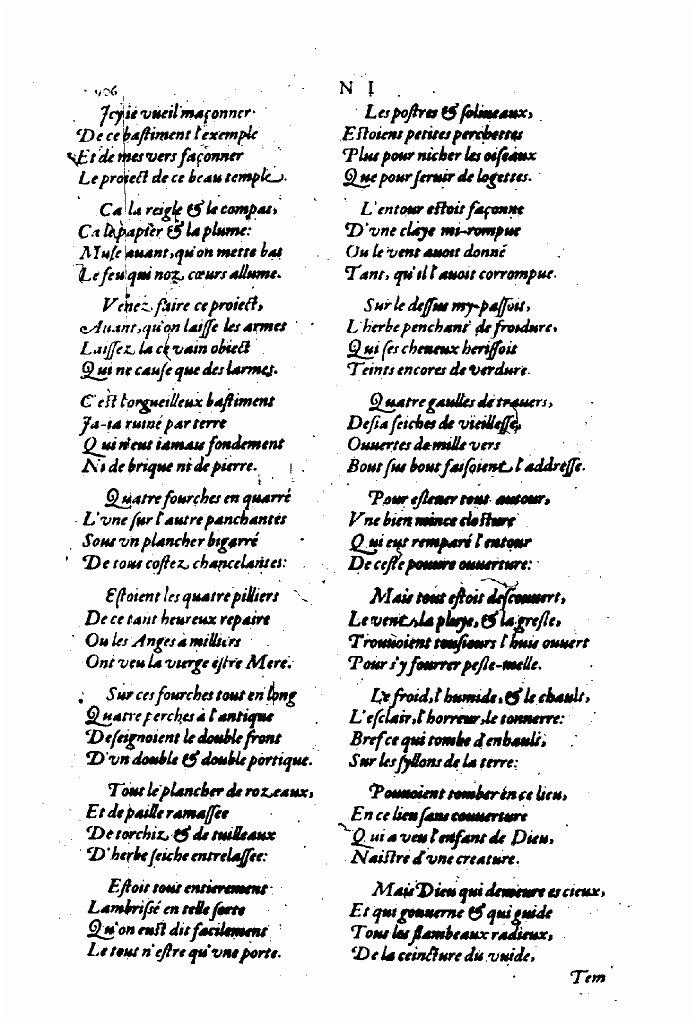 906
N I
Icy ie vueil maçonner
De ce bastiment l'exemple
Et de mes vers façonner
Le proiect de ce beau temple.
Ca la reigle & le compas,
Ca le papier & la plume:
Muse auant, qu'on mette bas
Le feu qui noz cœurs allume.
Venez faire ce proiect,
Auant, qu'on laisse les armes
Laissez la ce vain obiect
Qui ne cause que des larmes.
C'est l'orgueilleux bastiment
Ia-ia ruiné par terre
Qui n'eut iamais fondement
Ni de brique ni de pierre.
Quatre fourches en quarré
L'vne sur l'autre panchantes
Sous vn plancher bigarré
De tous costez chancelantes:
Estoient les quatre pilliers
De ce tant heureux repaire
Ou les Anges à milliers
Ont veu la vierge estre Mere.
Sur ces fourches tout en long
Quatre perches à l'antique
Deseignoient le double front
D'vn double & double portique.
Tout le plancher de rozeaux,
Et de paille ramassee
De torchiz & de tuilleaux
D'herbe seiche entrelassee:
Estoit tout entierement
Lambrissé en telle sorte
Qu'on eust dit facilement
Le tout n'estre qu'vne porte.
Les postres & soliueaux,
Estoient petites perchettes
Plus pour nicher les oiseaux
Que pour seruir de logettes.
L'entour estoit façonne
D'vne claye mi-rompue
Ou le vent auoit donné
Tant, qu'il l'auoit corrompue.
Sur le dessus my-passoit,
L'herbe penchant de froidure,
Qui ses cheueux herissoit
Teints encores de verdure.
Quatre gaulles de trauers,
Desia seiches de vieillesse,
Ouuertes de mille vers
Bout sus bout faisoient l'addresse.
Pour esleuer tout autour,
Vne bien mince closture
Qui eut remparé l'entour
De ceste pouure ouuerture:
Mais tout estoit descouuert,
Le vent, la pluye, & la gresle,
Trouuoient tousiours l'huis ouuert
Pour s'y fourrer pesle-melle.
Le froid, l'humide, & le chault,
L'esclair, l'horreur, le tonnerre:
Bref ce qui tombe d'enhault,
Sur les syllons de la terre:
Pouuoient tomber en ce lieu,
En ce lieu sans couuerture
Qui a veu l'enfant de Dieu,
Naistre d'vne creature.
Mais Dieu qui demeure es cieux,
Et qui gouuerne & qui guide
Tous les flambeaux radieux,
De la ceincture du vuide,
Tem